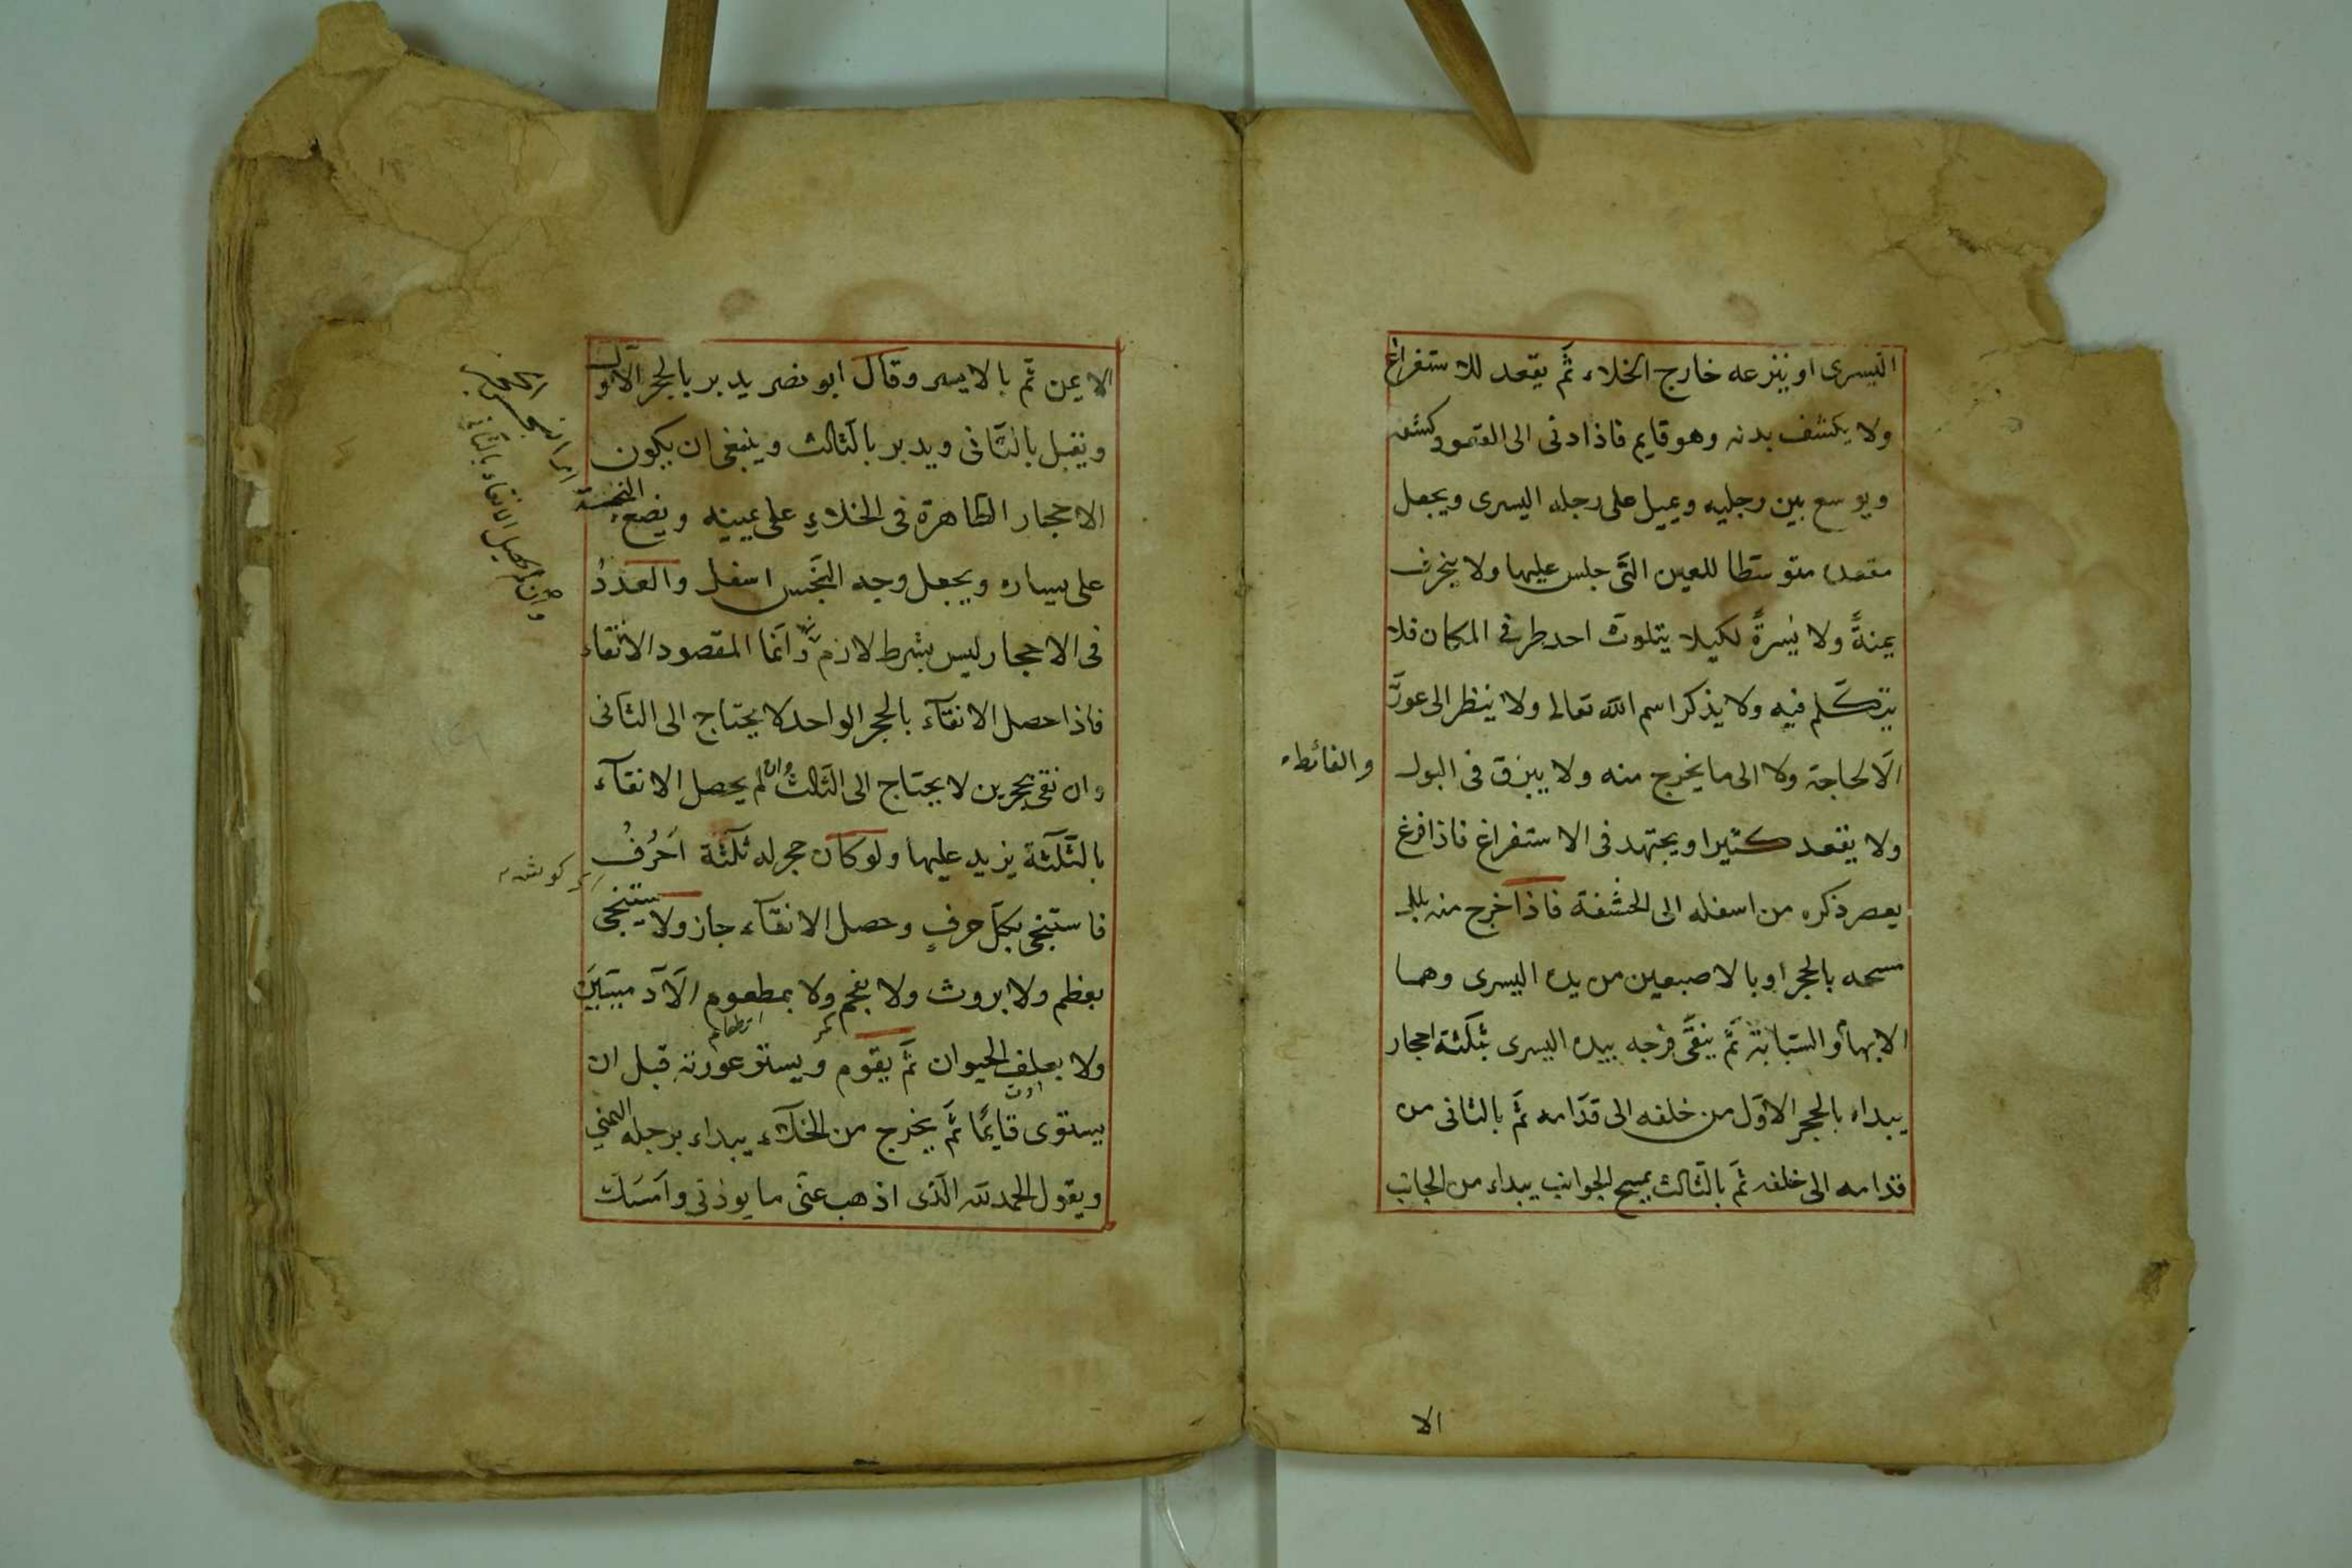 اليسرى او ينزعه خارج الخلاء ثمّ يقعد للاستفراغ
ولا يكشف بدنه وهو قايم فاذا دنى الى القعود كشفه
ويوسع بين رجليه ويميل على رجله اليسرى ويجعل
مقعده متوسّطا للعين التّى جلس عليها ولا ينحرف
يمنةً ولا يُسرةً لكيلا يتلوّث احد طرفى المكان فلا
يتكلّم فيه ولا يذكر اسم الله تعالى ولا ينظر الى عورتَه
الّا لحاجة ولا الى ما يخرج منه ولا يبزق فى البول
والغائط
ولا يقعد كثيرا ويجتهد فى الاستفراغ فاذا فرغ
يعصر ذكره من اسفله الى الحشفة فاذا خرج منه بلل
مسحه بالحجر او بالاصبعين من يده اليسرى وهما
الابهام والسّبّابة ثمّ ينقّى فرجه بيده اليسرى بثلثة احجار
يبداء بالحجر الاوّل من خلفه الى قدّامه ثمّ بالثانى من
قدامه الى خلفه ثمّ بالثّالث يمسح الجوانب يبداء من الجانب
الا
الايمن ثمّ بالايسر وقال ابو نصر يدبر بالحجر الاوّل
ويقبل بالثّانى ويدبر بالثّالث وينبغى ان يكون
الاحجار الطّاهرة فى الخلاءِ على يمينه ويضع النجسة
على يساره ويجعل وجه النّجس اسفل والعددُ
فى الاحجار ليس بشرط لازم وانّما المقصود الانقاء
فاذا حصل الانقآء بالحجر الواحد لا يحتاج الى الثّانى
وان نقى بحجرين لا يحتاج الى الثّالث وان لم يحصل الانقآء
بالثّلثة يزيد عليها ولو كان حجر له ثلثة اَحْرُفٍ
فاستنجى بكلّ حرفٍ وحصل الانقآء جاز ولا يستنجى
بعظم ولا بروث ولا بفحم ولا بمطعوم الآدميّين
ولا بعلف الحيوان ثمّ يقوم ويستر عورته قبل ان
يستوى قايمًا ثمّ يخرج من الخلآء يبداء برجله اليمنى
ويقول الحمد لله الّذى اذهب عنّى ما يوذنى وامسك